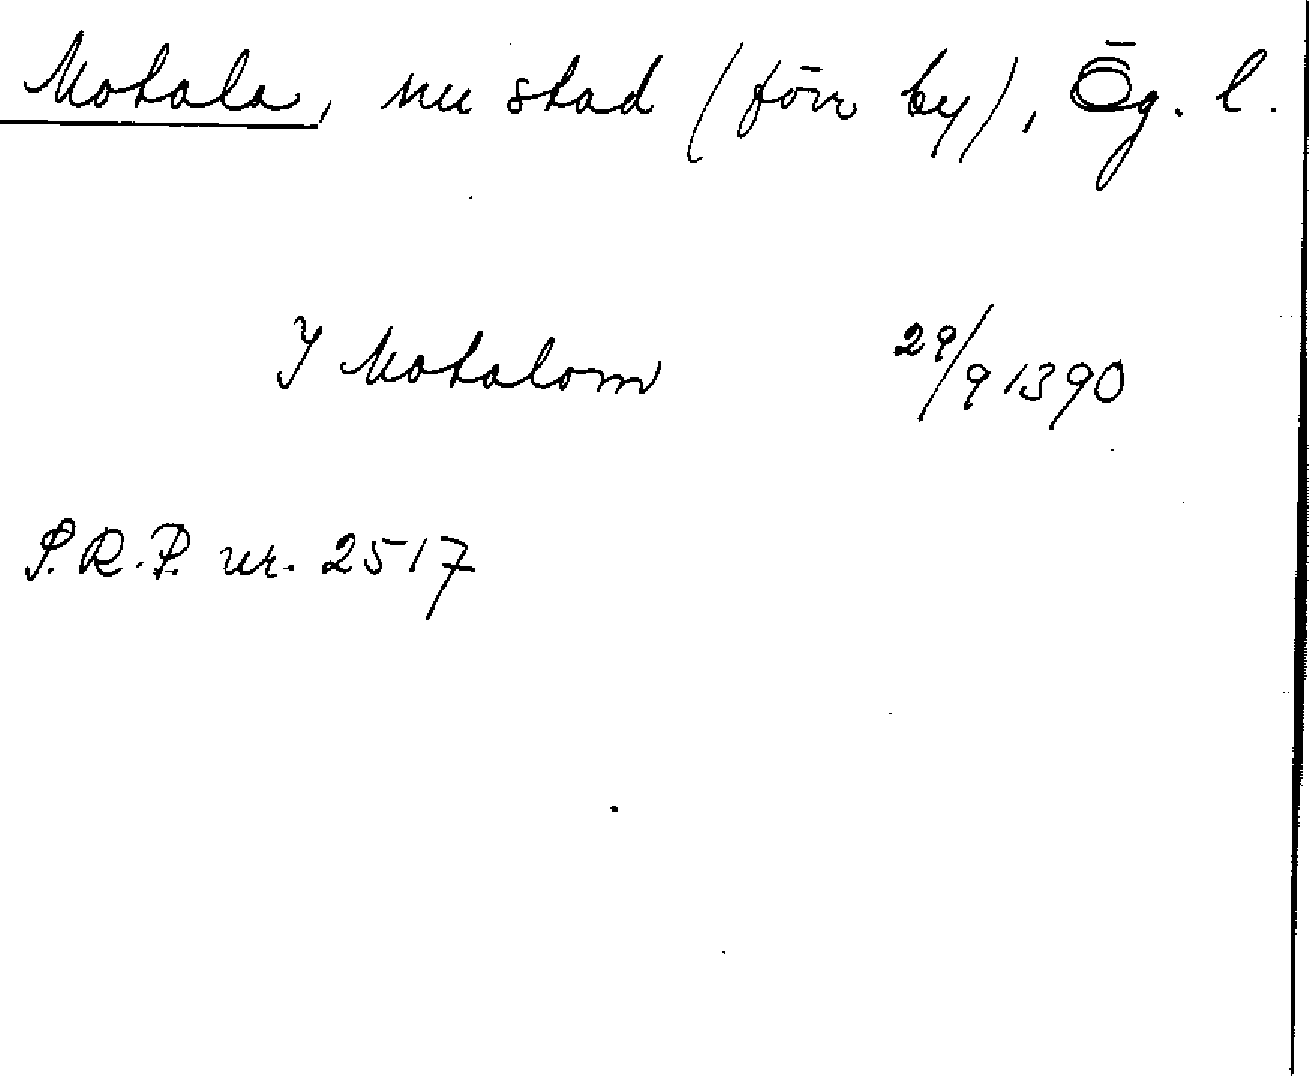 Motala, nu stad (förr by), Ög. l.
I Motalom 29/9 1390
S.R.P. nr. 2517